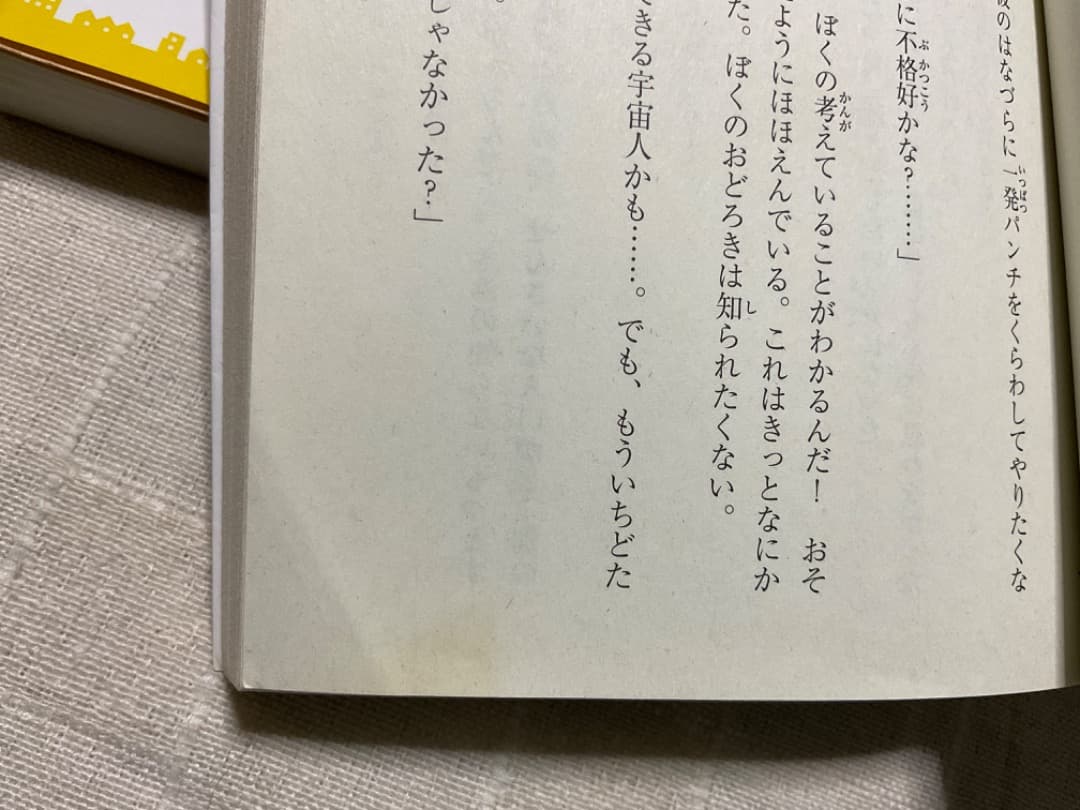 のはなづらに一発パンチをくらわしてやりたくな
に不格好かな?………」
ぼくの考えていることがわかるんだ! おそ
ようにほほえんでいる。これはきっとなにか
た。ぼくのおどろきは知られたくない。
きる宇宙人かも……。でも、もういちどた
。
しゃなかった?」